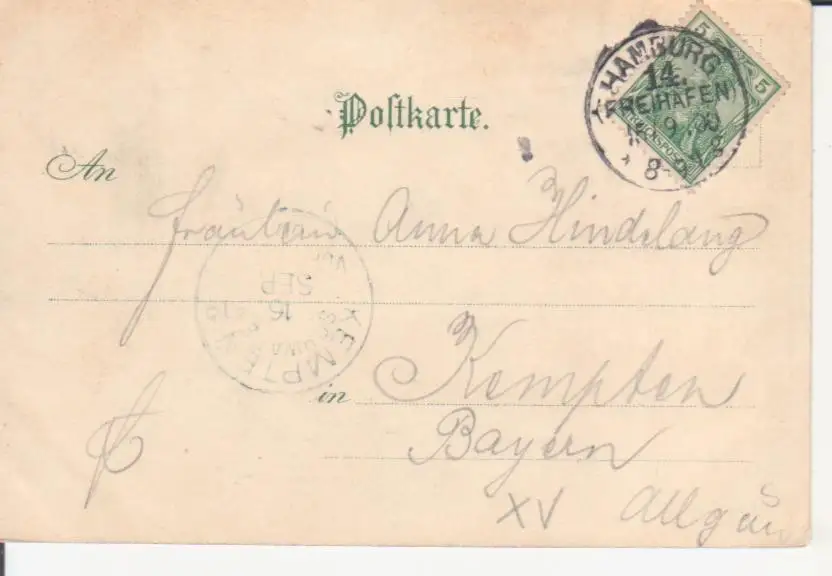 Postkarte.
HAMBURG
14.
(FREIHAFEN)
9.00
8-9
5
5
REICHSPOST
An
Fräulein Anna Hindelang
KEMPTEN
15
SEP
in Kempten
Bayern
XV Allgäu